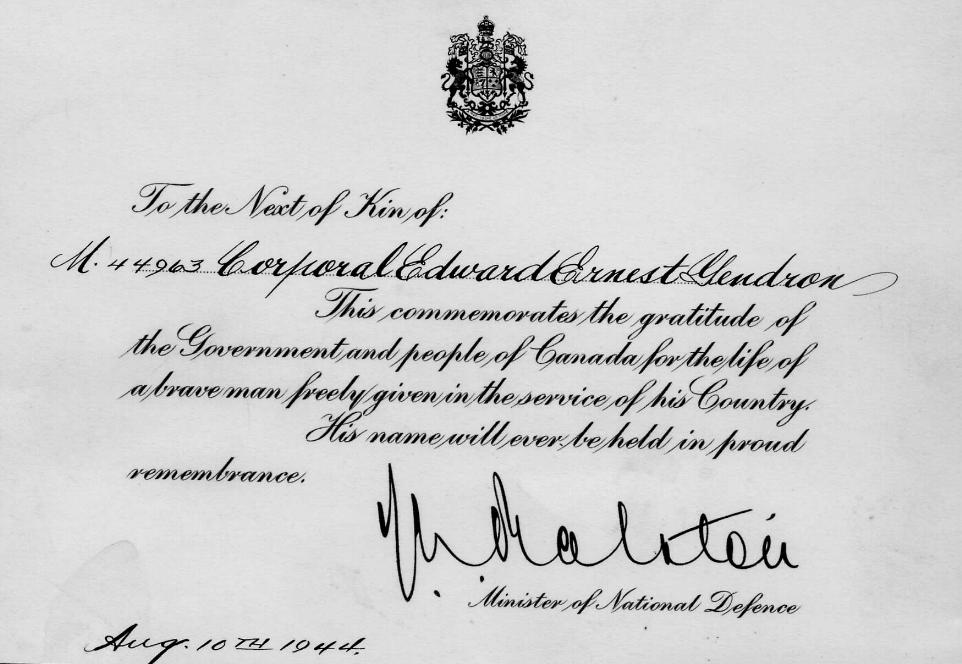 To the Next of Kin of:
M. 44963 Corporal Edward Ernest Gendron
This commemorates the gratitude of
the Government and people of Canada for the life of
a brave man freely given in the service of his Country.
His name will ever be held in proud
remembrance.
Ralston
Minister of National Defence
Aug. 10TH 1944.